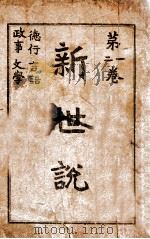 第一二卷
新世說
德行言語
政事文學